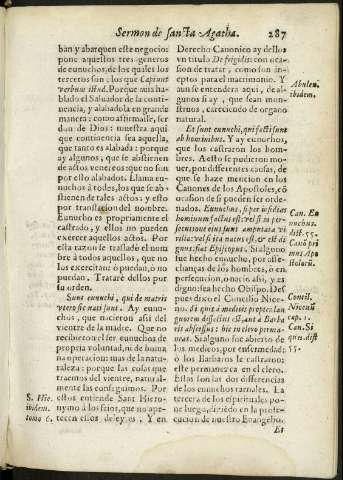 Sermon de santa Agatha. 287
ban y abarquen este negocio:
pone aquestos tres generos
de eunuchos, de los quales los
terceros son: los que Capiunt
verbum istud. Porque mi
blado el Saluador de la conti-
nencia, y alabandola en grande
manera: como afirmasse, ser
don de Dios: muestra aqui
que continencia sea aquella,
que tanto alabada: porque ay
algunos, que se abstienen
de actos venereos que no son
por esso alabados. Llama eunu-
chos à todos, los que se abs-
tienen de tales actos: y esto
por translacion del nombre.
Eunucho es propriamente el
castrado, y ellos no pueden
exercer aquellos actos. Por
esta razon se traslade el nom
bre à todos aquellos, que no
los exercitan: ò puedan, ò no
puedan. Trataré dellos por
su orden.
Sunt eunuchi, qui de matris
vtero sic nati sunt. Ay eunu-
chos, que nacieron assi del
vientre de la madre. Que no
recibieron el ser eunuchos de
propria voluntad, ni de buena
na operacion: mas de la natu-
raleza: porque las cosas que
traemos del vientre, natural-
mente las conseguimos. Por
estos entiende Sant Hiero-
nymo à los frios, que no ape-
tecen estos deleytes, Y en
S. Hie.
ibidem.
tomo 6.
Derecho Canonico ay dellos
vn titulo De frigidis: con oca-
sion de tratar, como son in-
eptos para el matrimonio. Y
aun se entendera aqui, de al-
gunos si ay, que sean mon-
struos, careciendo de organo
natural.
Et sunt eunuchi, qui facti sunt
ab hominibus. Y ay eunuchos,
que los castraron los hom-
bres. A esto se pudieron mo-
uer, por differentes causas, de
que se haze mencion en los
Canones de los Apostoles, cõ
ocasion de si pueden ser orde-
nados. Eunuchus, si per insidias
hominum factus est: vel si in per-
secutione eius sunt amputata vi
rilia: vel si ita natus est, & est di-
gnus: fiat Episcopus. Si alguno
fue hecho eunucho, por asse-
chanças de los hombres, ò en
persecucion, o nacio assi, y es
digno: sea hecho Obispo. Des
pues dixo el Concilio Nice-
no. Si quis à medicis propter lan
guorem desectus est, aut à Barba
ris abscissus: hic in clero perma-
neas. Si alguno fue abierto de
los medicos, por enfermedad;
ò los Barbaros le castraron:
este permanezca en el clero.
Estas son las dos differencias
de los eunuchos carnales. La
tercera de los espirituales po-
ne luego, diziẽdo en la prose-
cucion de nuestro Euangelio.
Et
Abulen.
ibidem.
Can. Eu
nuchus.
dist. 55.
Canõ pri
mus Apo
stolorũ.
Concil.
Nicenũ
cap. 1.
Can. Si
quis. dist
55.